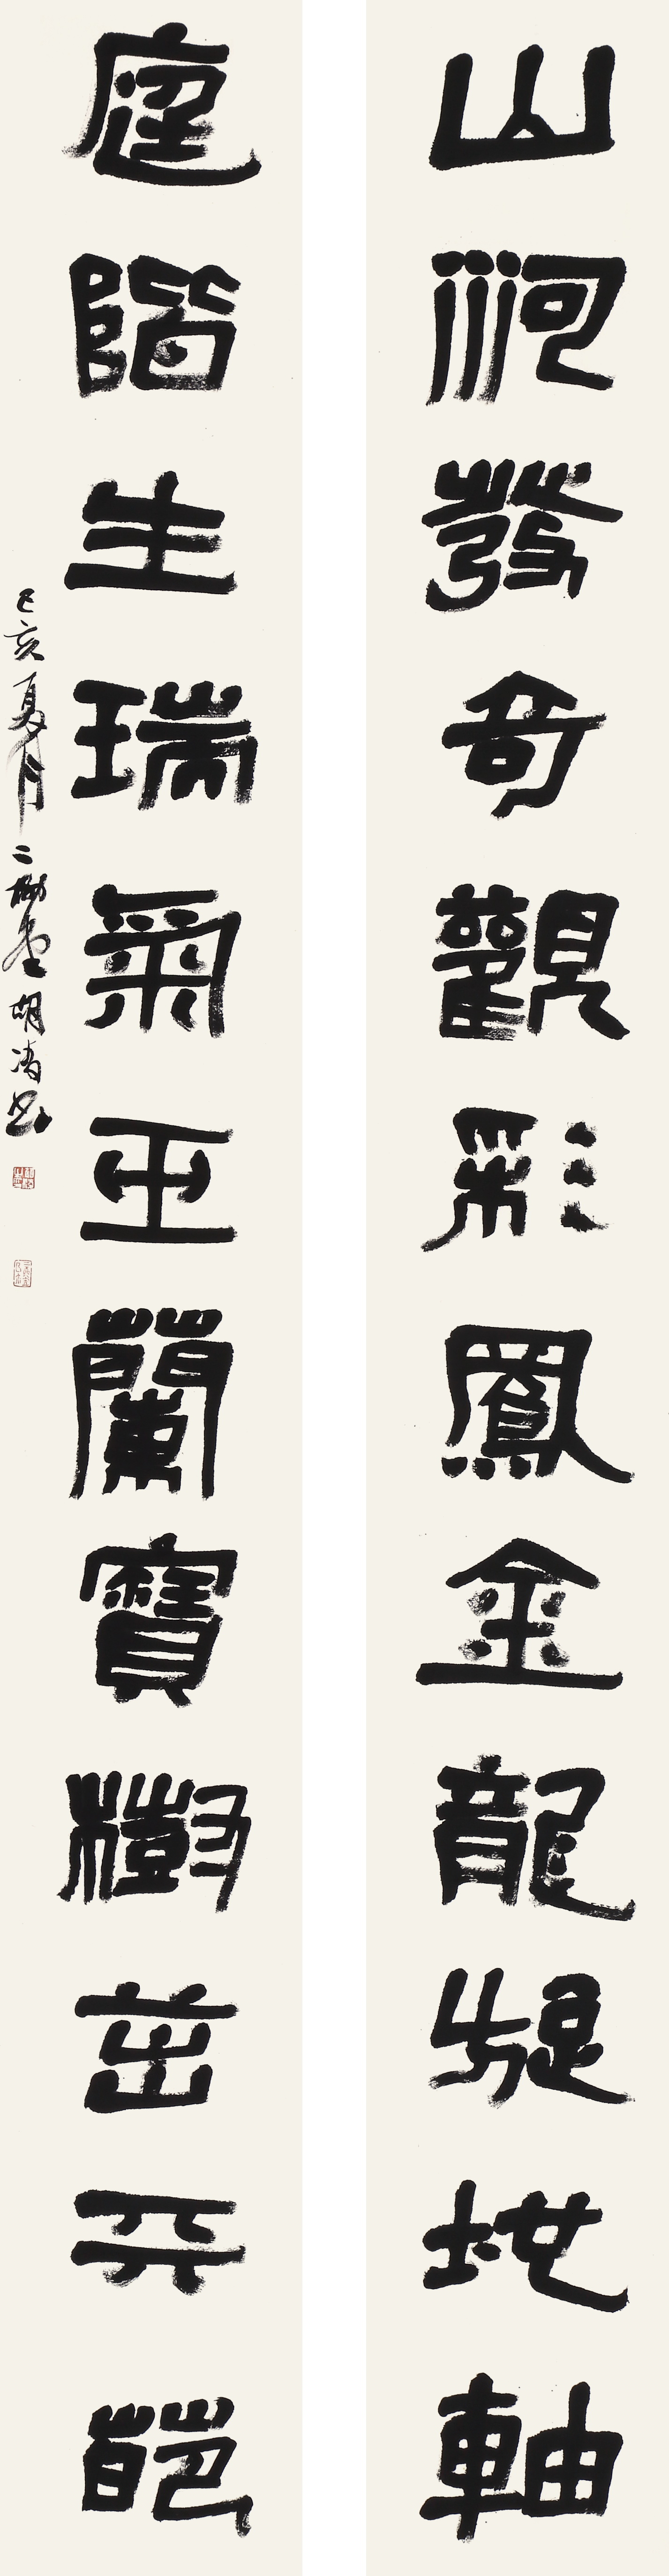 山河發奇觀彩鳳金龍旋地軸
庭階生瑞氣玉蘭寶樹茁天葩
己亥夏月二 堂胡 書